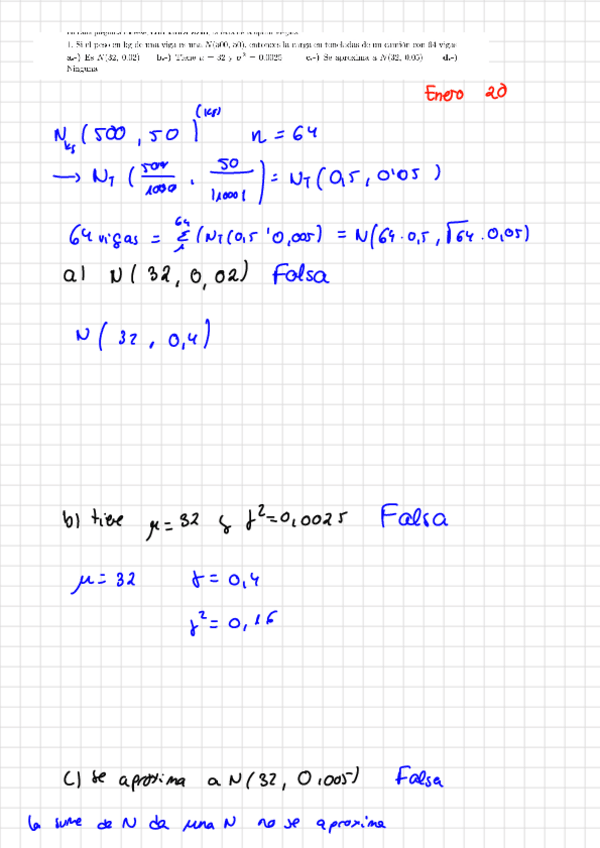 1. Si el peso en kg de una viga es una N(500, 50), entonces la carga en toneladas de un camión con 64 vigas
a.-) Es N(32, 0.02) b.-) Tiene μ = 32 y σ² = 0.0025 c.-) Se aproxima a N(32, 0.05) d.-)
Ninguna
Enero 20
N_kg (500, 50) (kg) n = 64
→ N_T (500/1000, 50/|1000|) = N_T (0,5, 0'05)
64 vigas = Σ_1^64 (N_T(0,5 ' 0,005) = N(64·0,5, √64·0,05)
a) N(32, 0,02) Falsa
N(32, 0,4)
b) tiene μ = 32 y σ²=0,0025 Falsa
μ = 32 σ = 0,4
σ² = 0,16
c) Se aproxima a N(32, 0.005) Falsa
la suma de N da una N no se aproxima